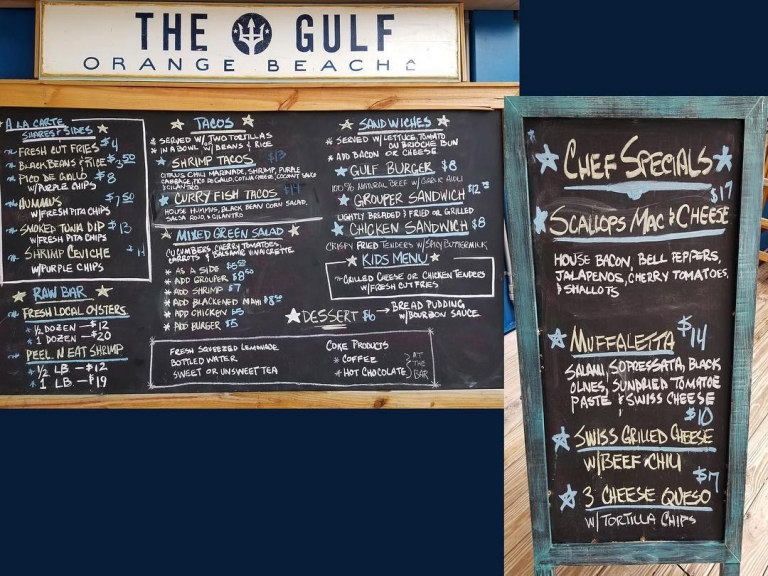 THE GULF
ORANGE BEACH
A LA CARTE
SHARES & SIDES
FRESH CUT FRIES $4
BLACK BEANS & RICE $3.50
PICO DE GALLO $8
W/PURPLE CHIPS
HUMMUS $7.50
W/FRESH PITA CHIPS
SMOKED TUNA DIP $13
W/FRESH PITA CHIPS
SHRIMP CEVICHE
W/PURPLE CHIPS
RAW BAR
FRESH LOCAL OYSTERS
½ DOZEN — $12
1 DOZEN — $20
PEEL N EAT SHRIMP
½ LB — $12
1 LB — $19
TACOS
SERVED W/ TWO TORTILLAS
IN A BOWL W/ BEANS & RICE
SHRIMP TACOS $13
CITRUS CHILI MARINADE, SHRIMP, PURPLE
CABBAGE, PICO DE GALLO, COTIJA CHEESE, COCONUT SAUCE
& CILANTRO
CURRY FISH TACOS
HOUSE HUMMUS, BLACK BEAN CORN SALAD,
SALSA ROJA & CILANTRO
MIXED GREEN SALAD
CUCUMBERS, CHERRY TOMATOES,
CARROTS & BALSAMIC VINAIGRETTE
AS A SIDE $5.50
ADD GROUPER $8.50
ADD SHRIMP $7
ADD BLACKENED MAHI $8.50
ADD CHICKEN $5
ADD BURGER $5
SANDWICHES
SERVED W/ LETTUCE, TOMATO
ON BRIOCHE BUN
ADD BACON OR CHEESE
GULF BURGER $8
100% NATURAL BEEF W/ GARLIC AIOLI
GROUPER SANDWICH
LIGHTLY BREADED & FRIED OR GRILLED
CHICKEN SANDWICH $8
CRISPY FRIED TENDERS W/ SPICY BUTTERMILK
KIDS MENU
GRILLED CHEESE OR CHICKEN TENDERS
W/FRESH CUT FRIES
DESSERT $6 → BREAD PUDDING
W/BOURBON SAUCE
FRESH SQUEEZED LEMONADE
BOTTLED WATER
SWEET OR UNSWEET TEA
COKE PRODUCTS
COFFEE
HOT CHOCOLATE
AT
THE
BAR
CHEF SPECIALS
$17
SCALLOPS MAC & CHEESE
HOUSE BACON, BELL PEPPERS,
JALAPENOS, CHERRY TOMATOES,
& SHALLOTS
MUFFALETTA $14
SALAMI, SOPRESSATA, BLACK
OLIVES, SUNDRIED TOMATOE
PASTE & SWISS CHEESE
$10
SWISS GRILLED CHEESE
W/BEEF CHILI
3 CHEESE QUESO
W/TORTILLA CHIPS